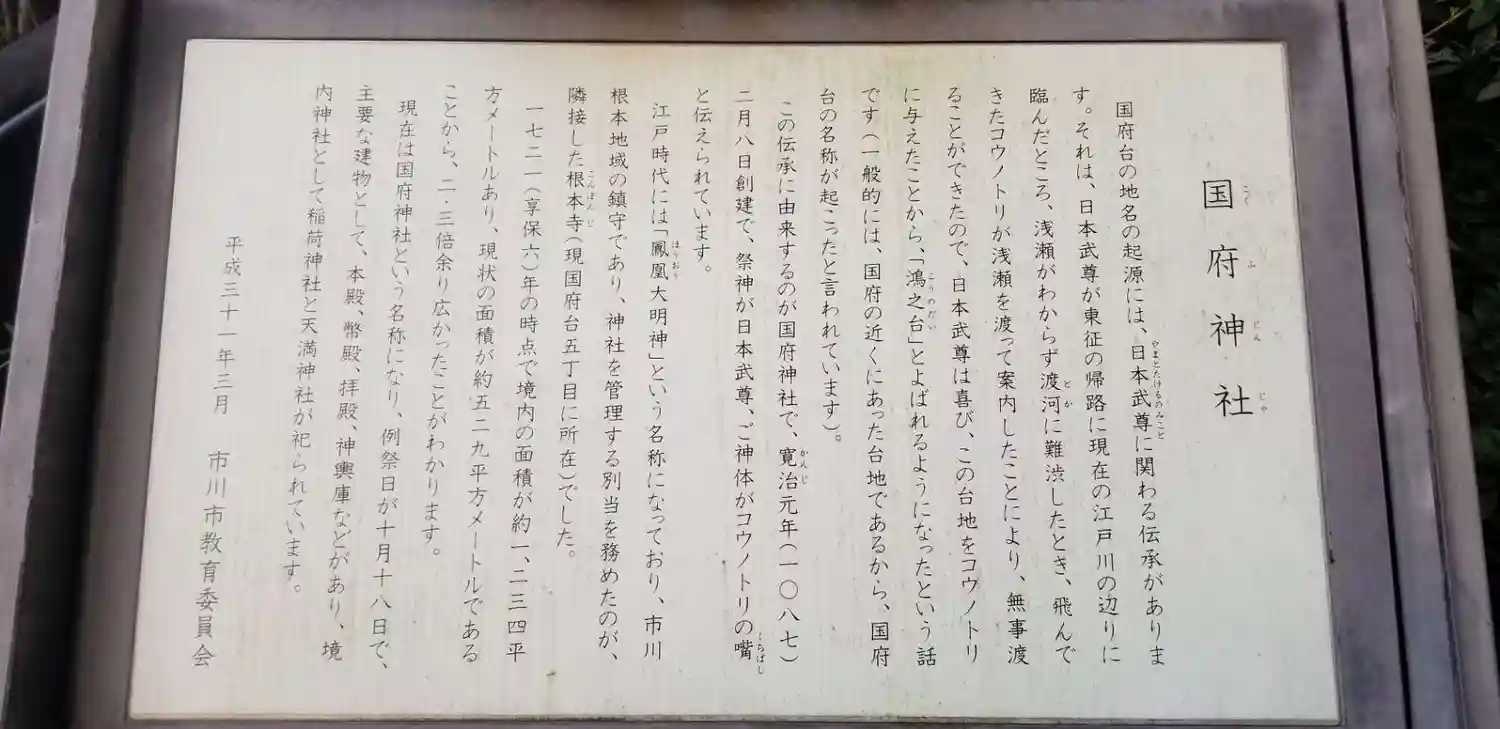 国府神社
国府台の地名の起源には、日本武尊に関わる伝承がありま
す。それは、日本武尊が東征の帰路に現在の江戸川の辺りに
臨んだところ、浅瀬がわからず渡河に難渋したとき、飛んで
きたコウノトリが浅瀬を渡って案内したことにより、無事渡
ることができたので、日本武尊は喜び、この台地をコウノトリ
に与えたことから、「鴻之台」とよばれるようになったという話
です(一般的には、国府の近くにあった台地であるから、国府
台の名称が起こったと言われています)。
この伝承に由来するのが国府神社で、寛治元年(一〇八七)
二月八日創建で、祭神が日本武尊、ご神体がコウノトリの嘴
と伝えられています。
江戸時代には「鳳凰大明神」という名称になっており、市川
根本地域の鎮守であり、神社を管理する別当を務めたのが、
隣接した根本寺(現国府台五丁目に所在)でした。
一七二一(享保六)年の時点で境内の面積が約一、二三四平
方メートルあり、現状の面積が約五二九平方メートルである
ことから、二・三倍余り広かったことがわかります。
現在は国府神社という名称になり、例祭日が十月十八日で、
主要な建物として、本殿、幣殿、拝殿、神輿庫などがあり、境
内神社として稲荷神社と天満神社が祀られています。
平成三十一年三月 市川市教育委員会